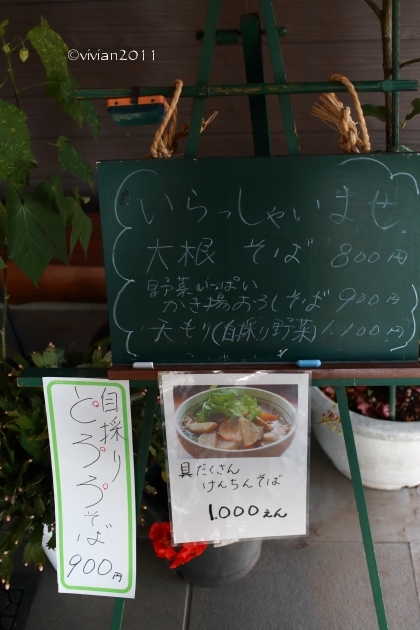 ©vivian2011
いらっしゃいませ
大根 そば 800円
野菜いっぱい
かき揚おろしそば 900円
大もり(自採り野菜)1.100円
自採り
とろろそば
900円
具だくさん
けんちんそば
1.000えん